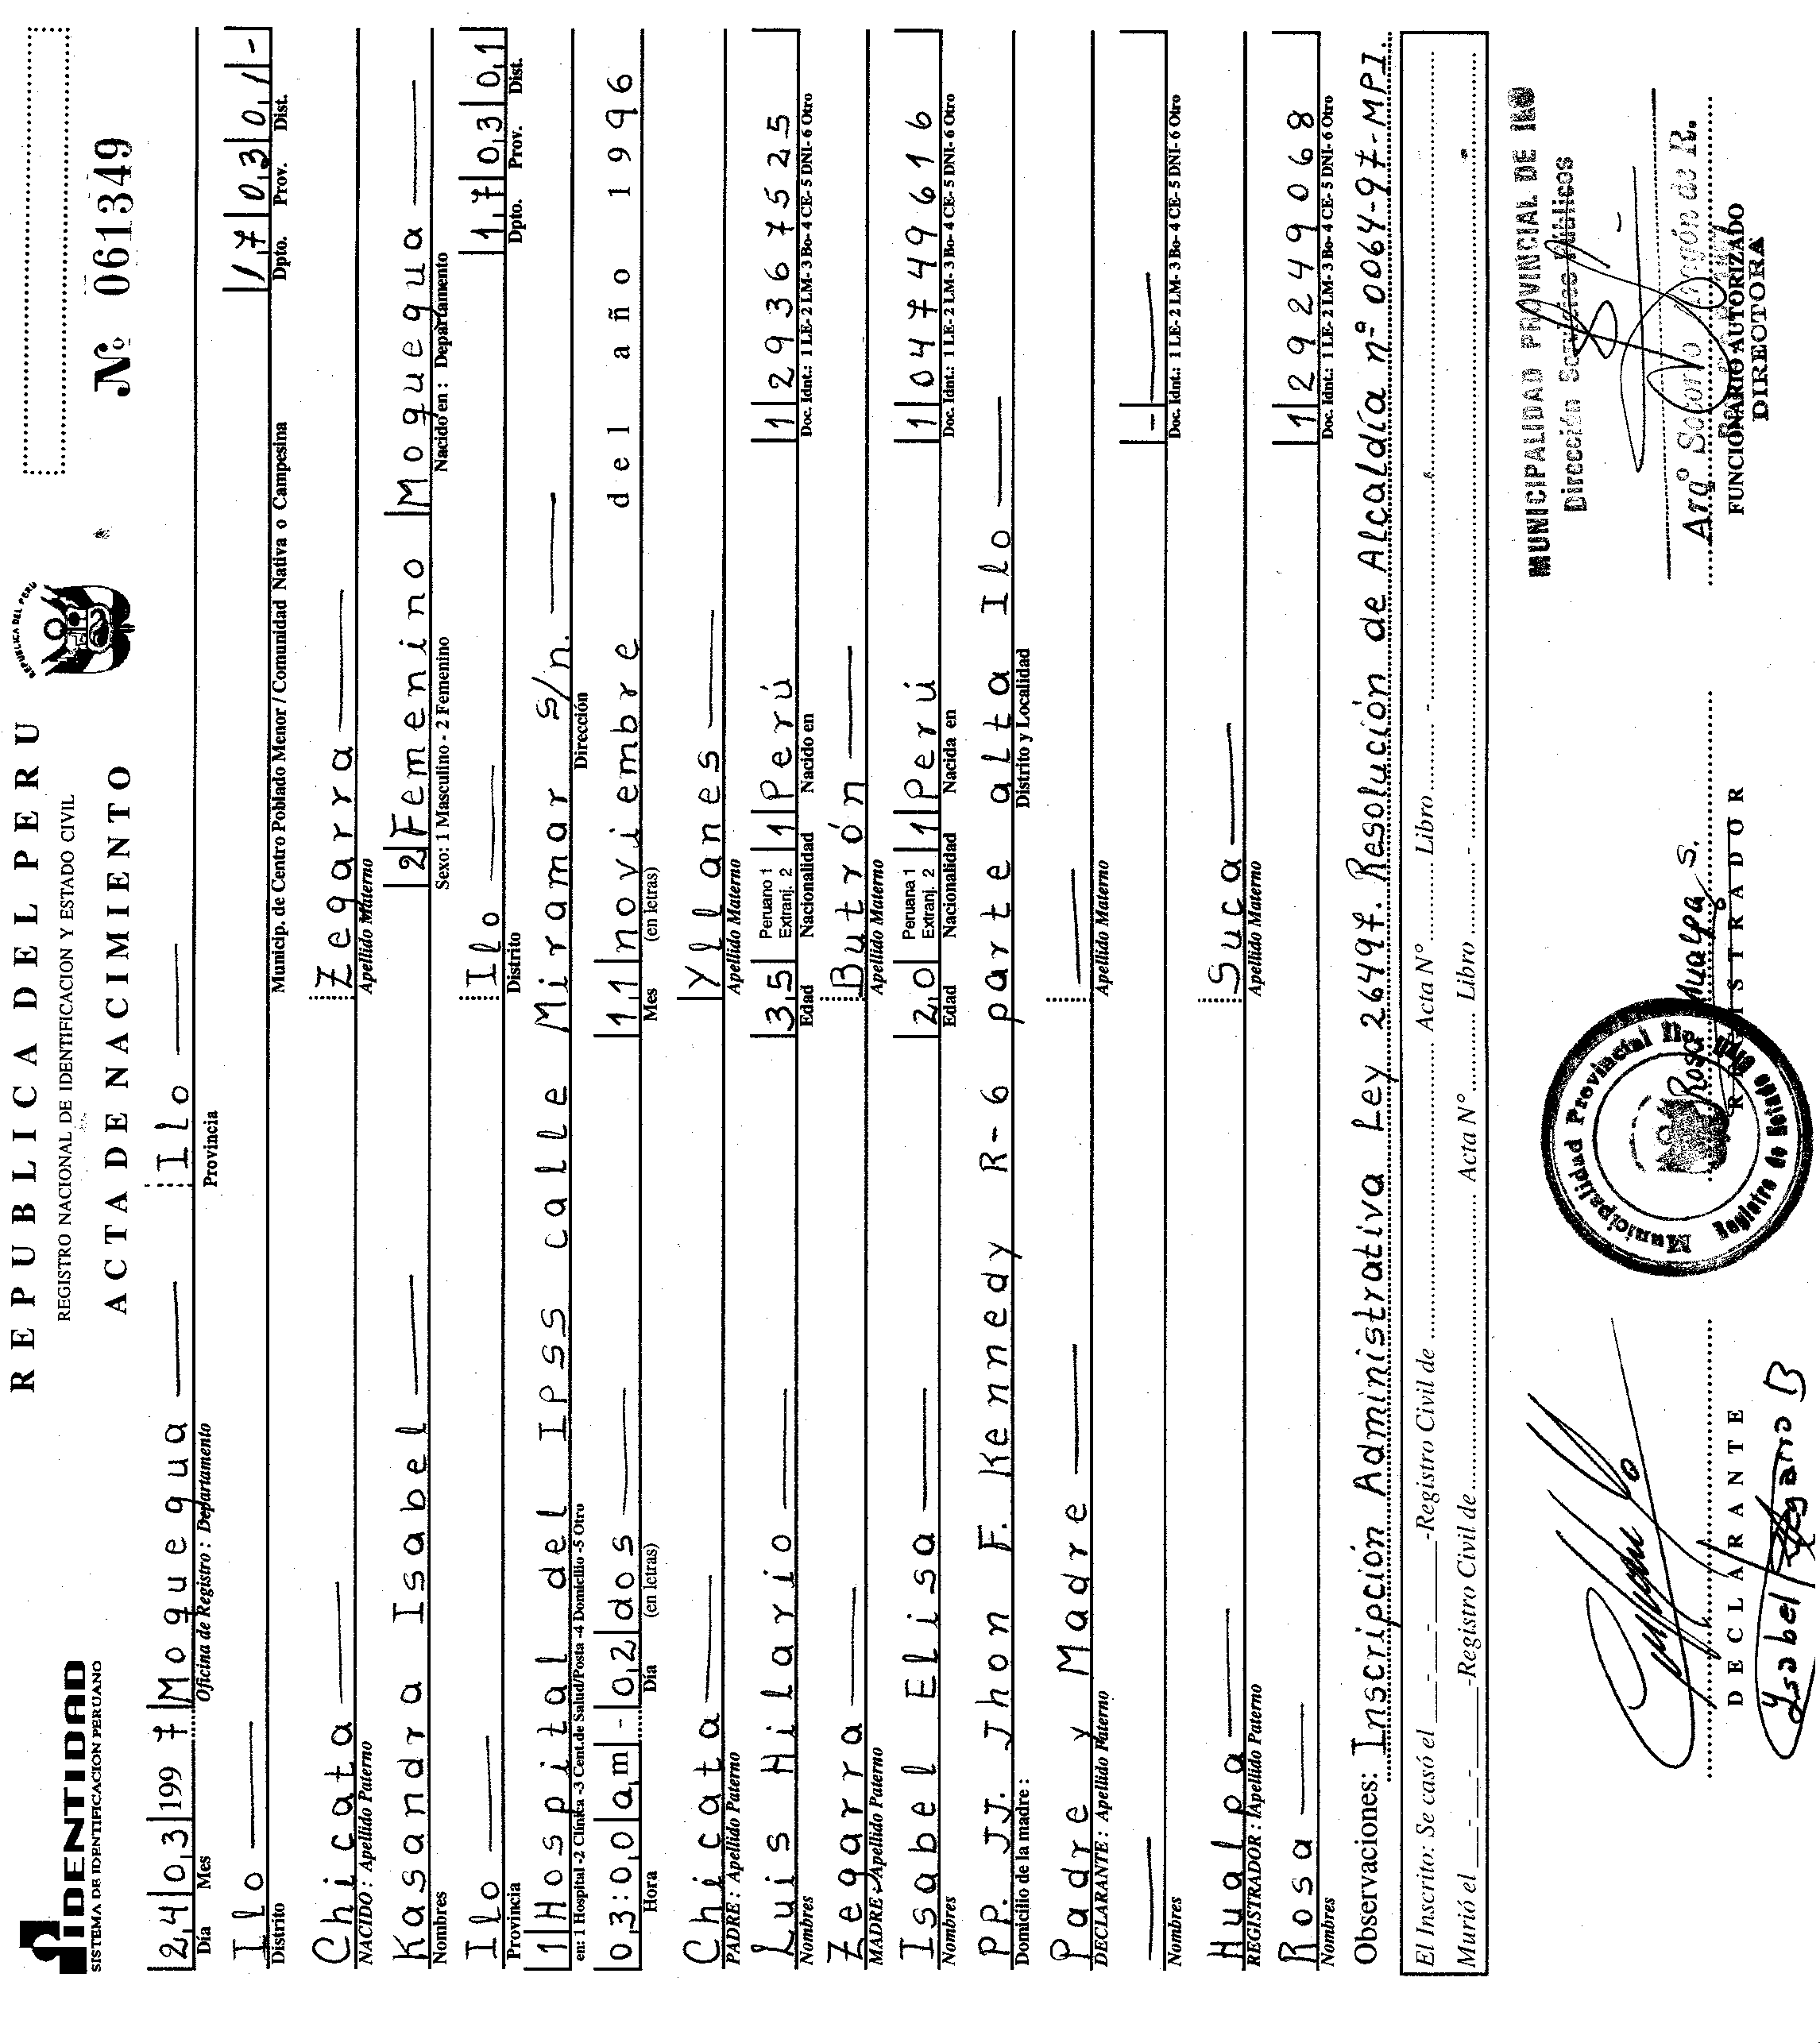 REPUBLICA DEL PERU
REGISTRO NACIONAL DE IDENTIFICACION Y ESTADO CIVIL
ACTA DE NACIMIENTO
IDENTIDAD
SISTEMA DE IDENTIFICACION PERUANO
REPUBLICA DEL PERU
Nº 061349
24 03 1997 Moquegua Ilo
Día Mes Oficina de Registro : Departamento Provincia
Ilo 17 03 01 -
Distrito Municip. de Centro Poblado Menor / Comunidad Nativa o Campesina Dpto. Prov. Dist.
Chicata Zegarra
NACIDO : Apellido Paterno Apellido Materno
Kasandra Isabel 2 Femenino Moquegua
Nombres Sexo: 1 Masculino - 2 Femenino Nacido en : Departamento
Ilo Ilo 17 03 01
Provincia Distrito Dpto. Prov. Dist.
1 Hospital del IPSS calle Miramar s/n.
en: 1 Hospital -2 Clínica -3 Cent.de Salud/Posta -4 Domicilio -5 Otro Dirección
03:00 am - 02 dos 11 noviembre del año 1996
Hora Día (en letras) Mes (en letras)
Chicata Yllanes
PADRE : Apellido Paterno Apellido Materno
Luis Hilario 35 Peruano 1 Extranj. 2 1 Perú 1 29367525
Nombres Edad Nacionalidad Nacido en Doc. Idnt.: 1 LE- 2 LM- 3 Bo- 4 CE- 5 DNI- 6 Otro
Zegarra Butrón
MADRE : Apellido Paterno Apellido Materno
Isabel Elisa 20 Peruana 1 Extranj. 2 1 Perú 1 04749616
Nombres Edad Nacionalidad Nacida en Doc. Idnt.: 1 LE- 2 LM- 3 Bo- 4 CE- 5 DNI- 6 Otro
PP. JJ. Jhon F. Kennedy R-6 parte alta Ilo
Domicilio de la madre : Distrito y Localidad
Padre y Madre
DECLARANTE : Apellido Paterno Apellido Materno
-
Nombres Doc. Idnt.: 1 LE- 2 LM- 3 Bo- 4 CE- 5 DNI- 6 Otro
Hualpa Suca
REGISTRADOR : Apellido Paterno Apellido Materno
Rosa 1 29249068
Nombres Doc. Idnt.: 1 LE- 2 LM- 3 Bo- 4 CE- 5 DNI- 6 Otro
Observaciones: Inscripción Administrativa Ley 26497. Resolución de Alcaldía nº 0064-97-MPI.
El Inscrito: Se casó el - - -Registro Civil de Acta N° Libro -
Murió el - - -Registro Civil de Acta N° Libro -
MUNICIPALIDAD PROVINCIAL DE ILO
Dirección Servicios Públicos
Municipalidad Provincial Ilo
Registro de Estado Civil
Rosa Hualpa S.
DECLARANTE
REGISTRADOR
FUNCIONARIO AUTORIZADO
DIRECTORA
Isabel Zegarra B